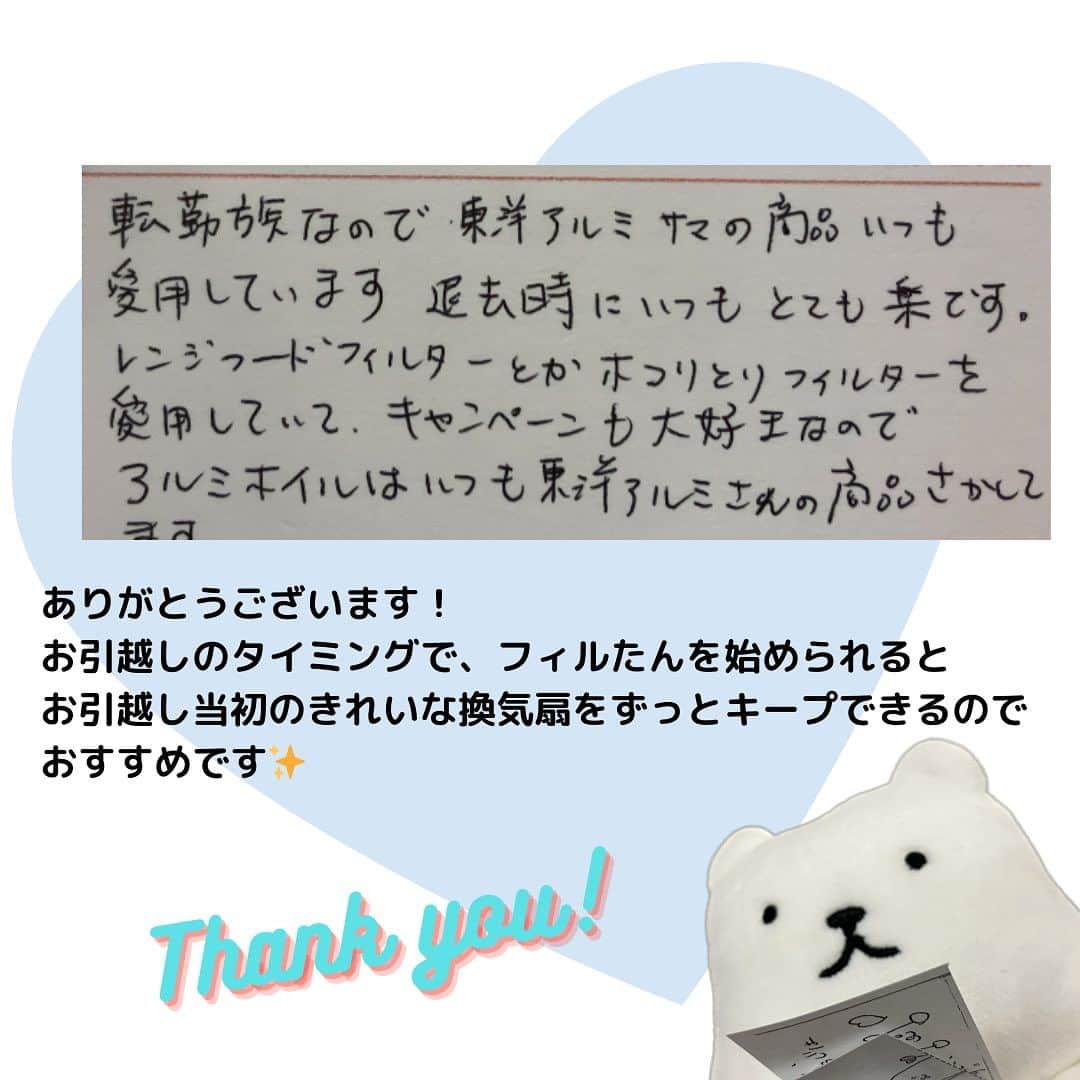 転勤族なので 東洋アルミ サマの商品いつも
愛用しています 退去時にいつもとても楽です。
レンジフードフィルターとかホコリとりフィルターを
愛用していて、キャンペーンも大好王なので
アルミホイルはいつも東洋アルミさんの商品さがして
ます
ありがとうございます！
お引越しのタイミングで、フィルたんを始められると
お引越し当初のきれいな換気扇をずっとキープできるので
おすすめです✨
Thank you!